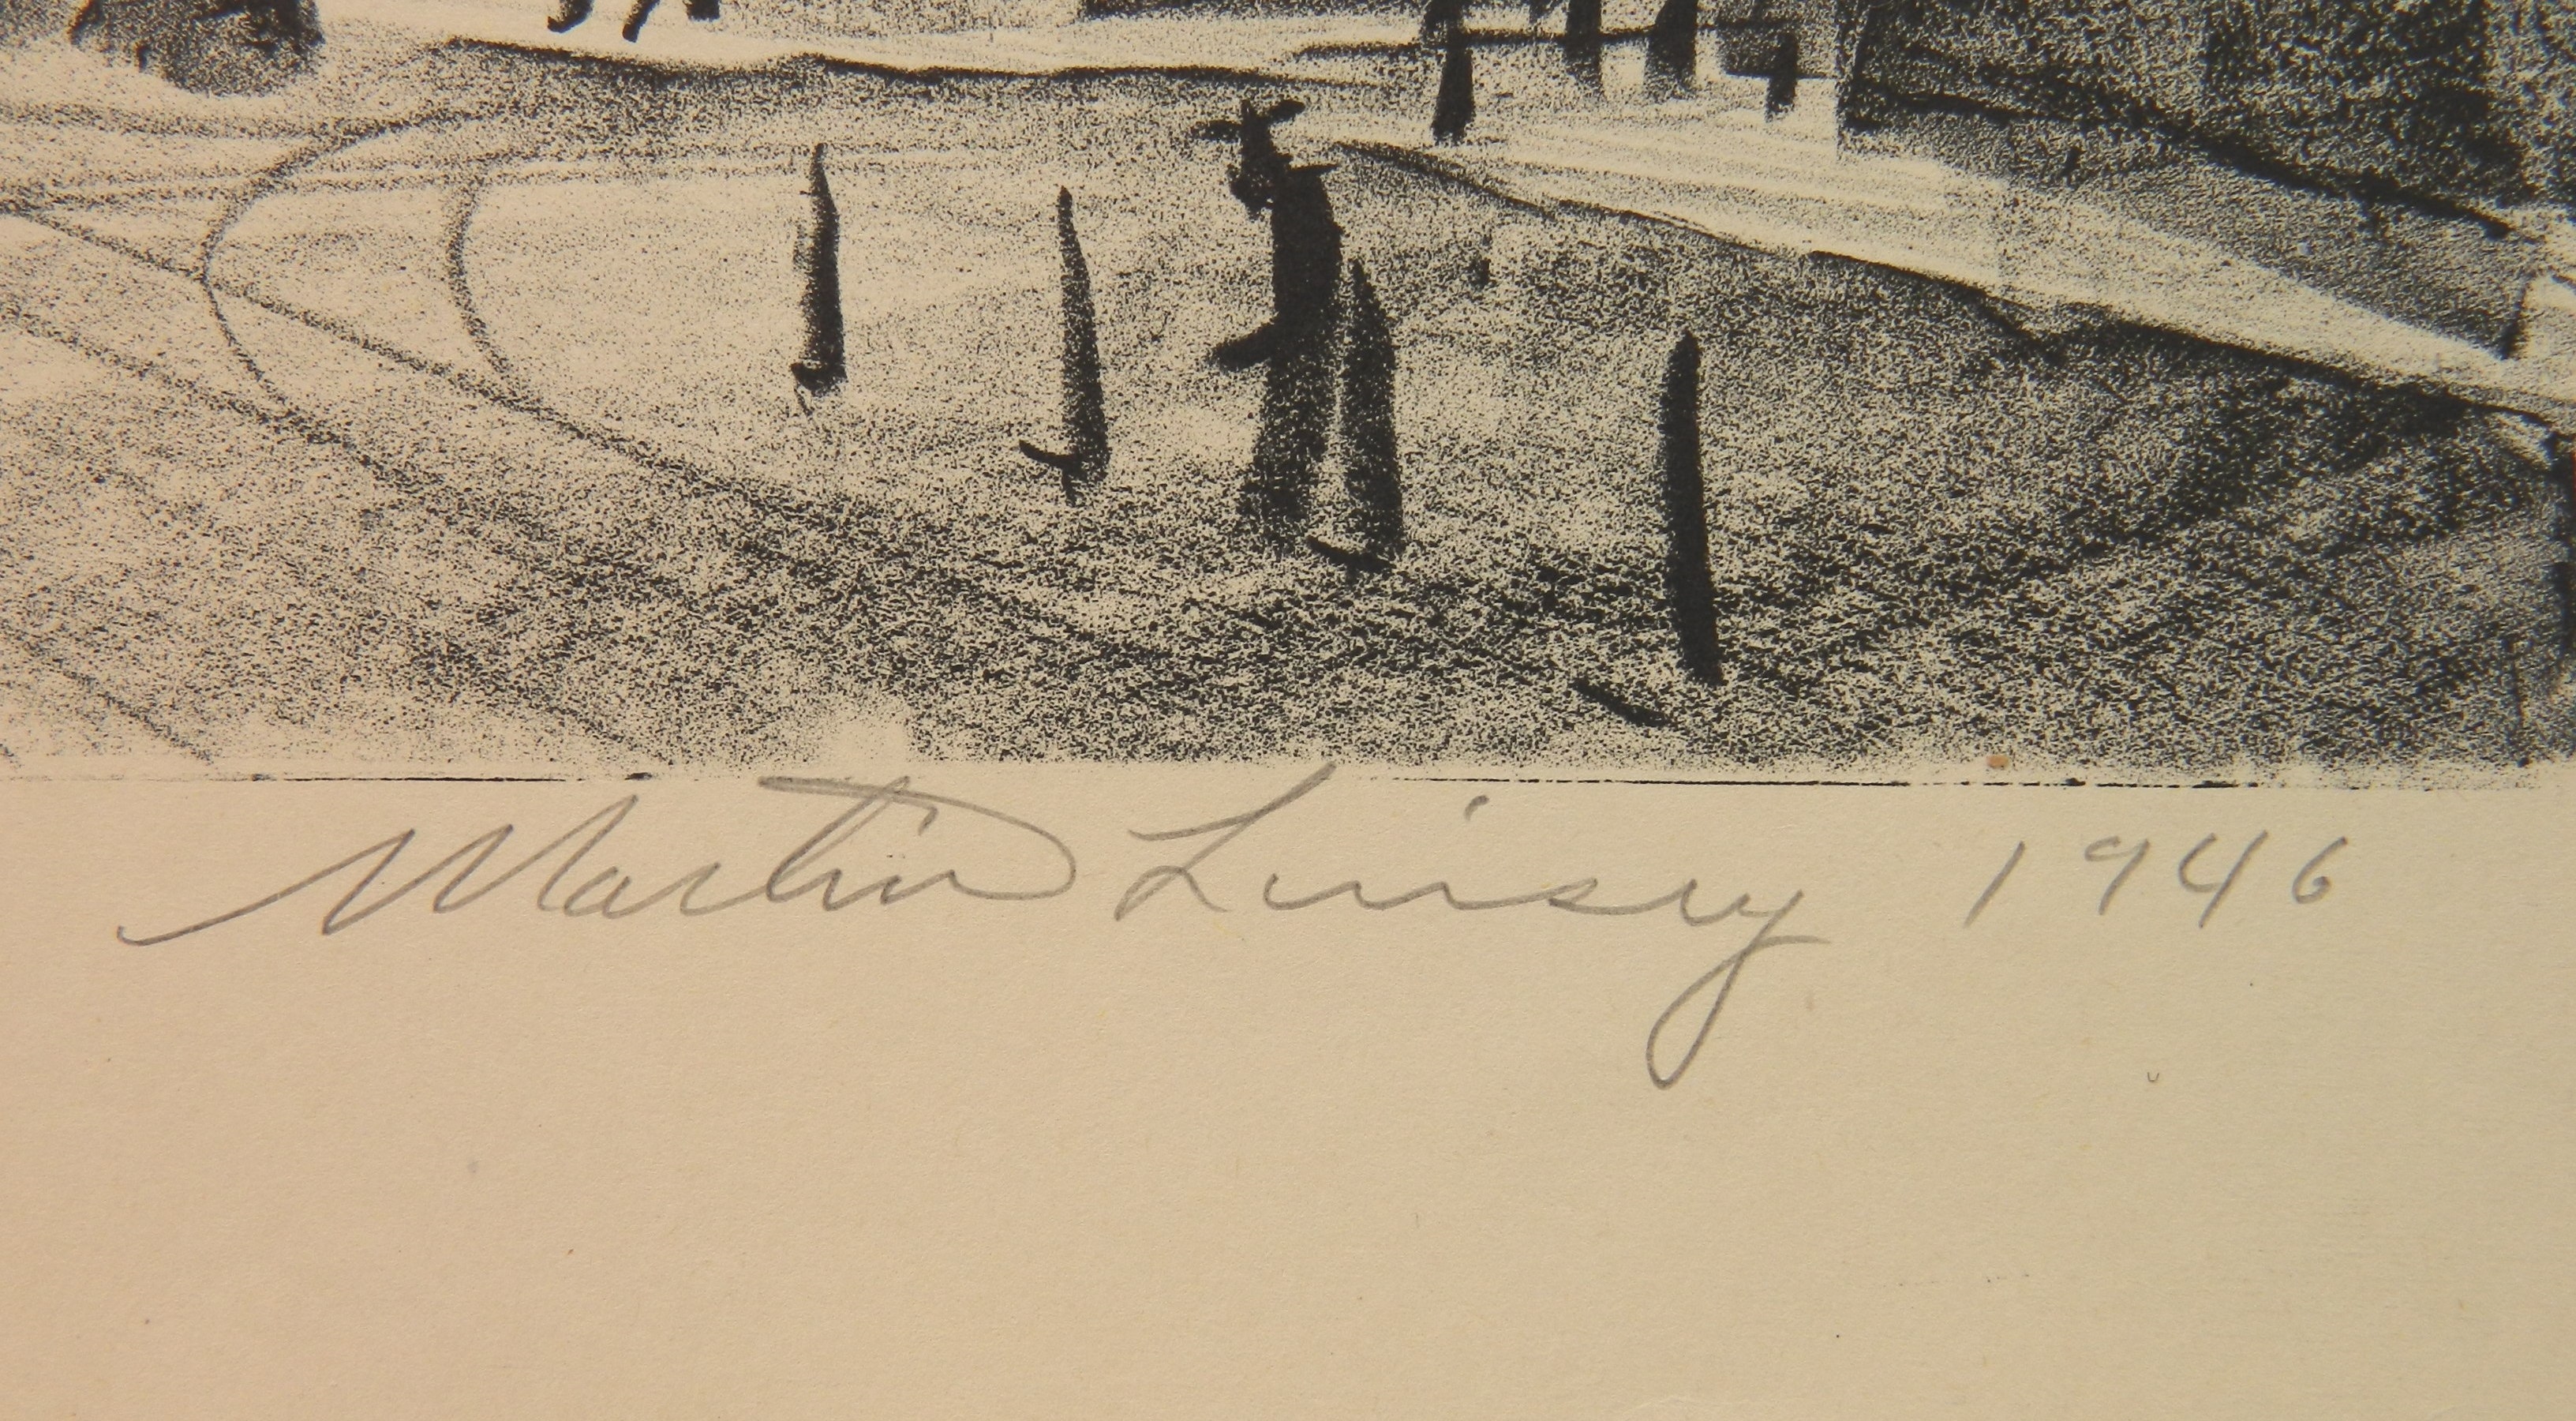 Martin Linsey 1946